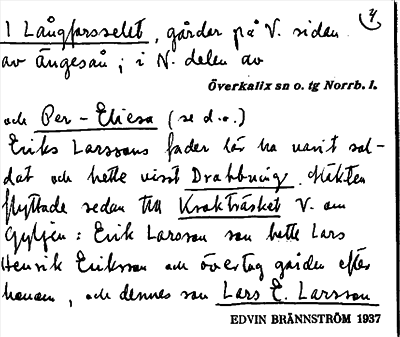 4
I Långforsselet, gårdar på V. sidan
av Ängesån, i N. delen av
Överkalix sn o. tg Norrb. l.
och Per-Eliesa (se d.o.)
Eriks Larssons fader lär ha varit sol-
dat och hette visst Drabbning. Släkten
flyttade sedan till Krokträsket V. om
Gyljen: Erik Larsson son hette Lars
Henrik Eriksson och övertog gården efter
honom, och dennes son Lars E. Larsson
EDVIN BRÄNNSTRÖM 1937